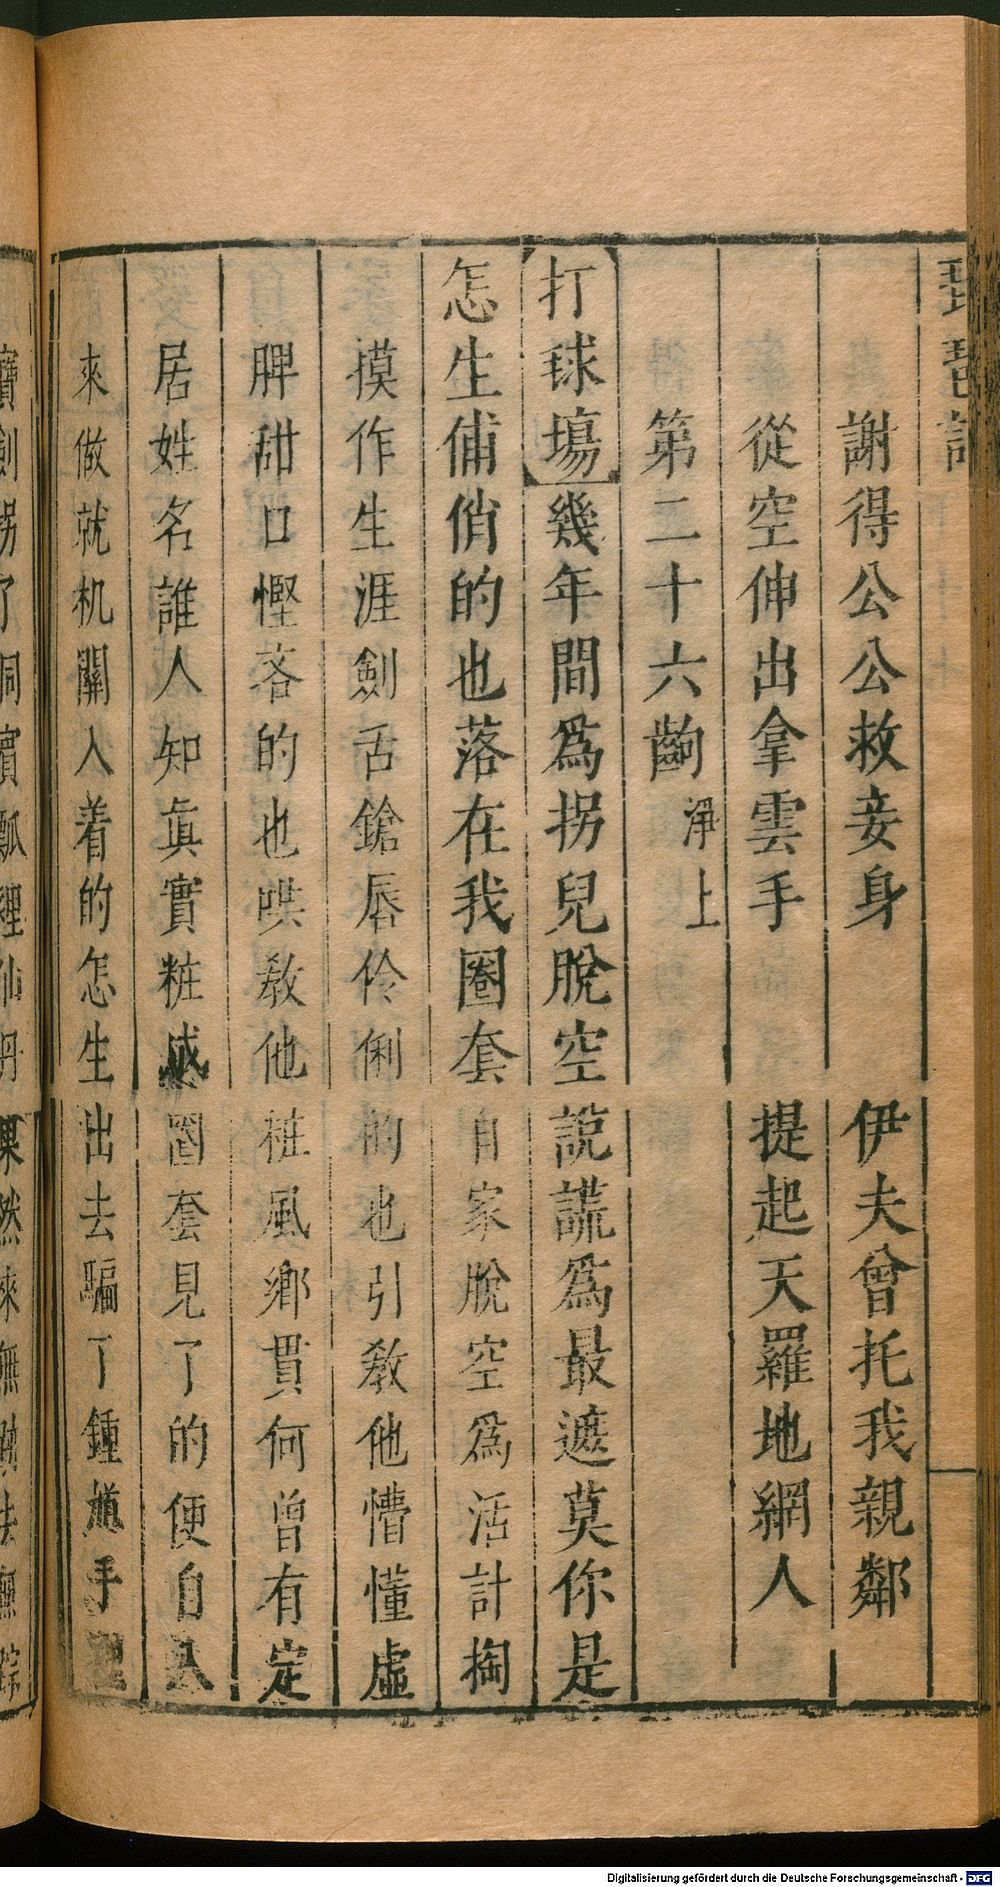 琵琶記
謝得公公救妾身　伊夫曾托我親鄰
從空伸出拿雲手　提起天羅地網人
第二十六齣　淨上
打球場　幾年間爲拐兒脫空說謊爲最遮莫你是
怎生俌俏的也落在我圈套　自家脫空爲活計掏
摸作生涯劍舌鎗唇伶俐的也引教他懵懂虛
脾甜口慳吝的也哄教他粧風鄉貫何曾有定
居姓名誰人知眞實粧成圈套見了的便自入
來做就机關入着的怎生出去騙了鍾馗手裡
寶劍拐了洞賓瓢裡仙丹果然來無跡去無踪
Digitalisierung gefördert durch die Deutsche Forschungsgemeinschaft - DFG